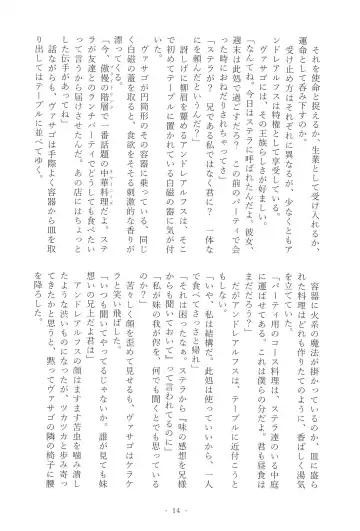 それを使命と捉えるか、生業として受け入れるか、
運命として呑み下すのか。
受け止め方はそれぞれに異なるが、少なくともア
ンドレアルフスは特権として享受している。
ヴァサゴには、その王族らしさが羨ましい。
「なんてね。今日はステラに呼ばれたんだよ。彼女、
週末は此処で過ごすだろ？　この前のパーティで会
った時におねだりされちゃってさ」
「ステラが？　兄である私ではなく君に？　一体な
んだというんだ！」
訝しげに柳眉を顰めるアンドレアルフスは、そこ
で初めてテーブルに置かれている白磁の器に気が付
いた。
ヴァサゴが円筒形のその容器に乗っている、同じ
く白磁の蓋を取ると、食欲をそそる刺激的な香りが
漂ってくる。
「今、傲慢の階層で一番話題の中華料理だよ。ステ
ラが友達とのランチパーティでどうしても食べたい
って言うから届けさせたんだ。あの店にはちょっと
した伝手があってね」
言いながらも、ヴァサゴは手際よく容器から皿を取
り出してはテーブルに並べてゆく。
容器に火系の魔法が掛かっているのか、皿に盛ら
れた料理はどれも作りたてのように、香ばしく湯気
を立てていた。
「パーティ用のコース料理は、ステラ達のいる中庭
に運ばせてある。これは僕らの分だよ。君も昼食は
まだだろう？」
だがアンドレアルフスは、テーブルに近付こうと
もしない。
「いや、私は結構だ。此処は使っていいから、一人
で食べてさっさと帰れ」
「それは困ったなぁ。ステラから『味の感想を兄様
からも聞いておいて』って言われてるのに」
「私が妹の我が侭を、何でも聞くとでも思っている
のか？」
苦々しく顔を歪めて見せるも、ヴァサゴはケラケ
ラと笑い飛ばした。
「いつも聞いてやってるじゃないか。誰が見ても妹
想いの兄上だよ君は」
アンドレアルフスの顔はますます苦虫を噛み潰し
たような渋いものになったが、ツカツカと歩み寄っ
てきたかと思うと、黙ってヴァサゴの隣の椅子に腰
を降ろした。
- 14 -